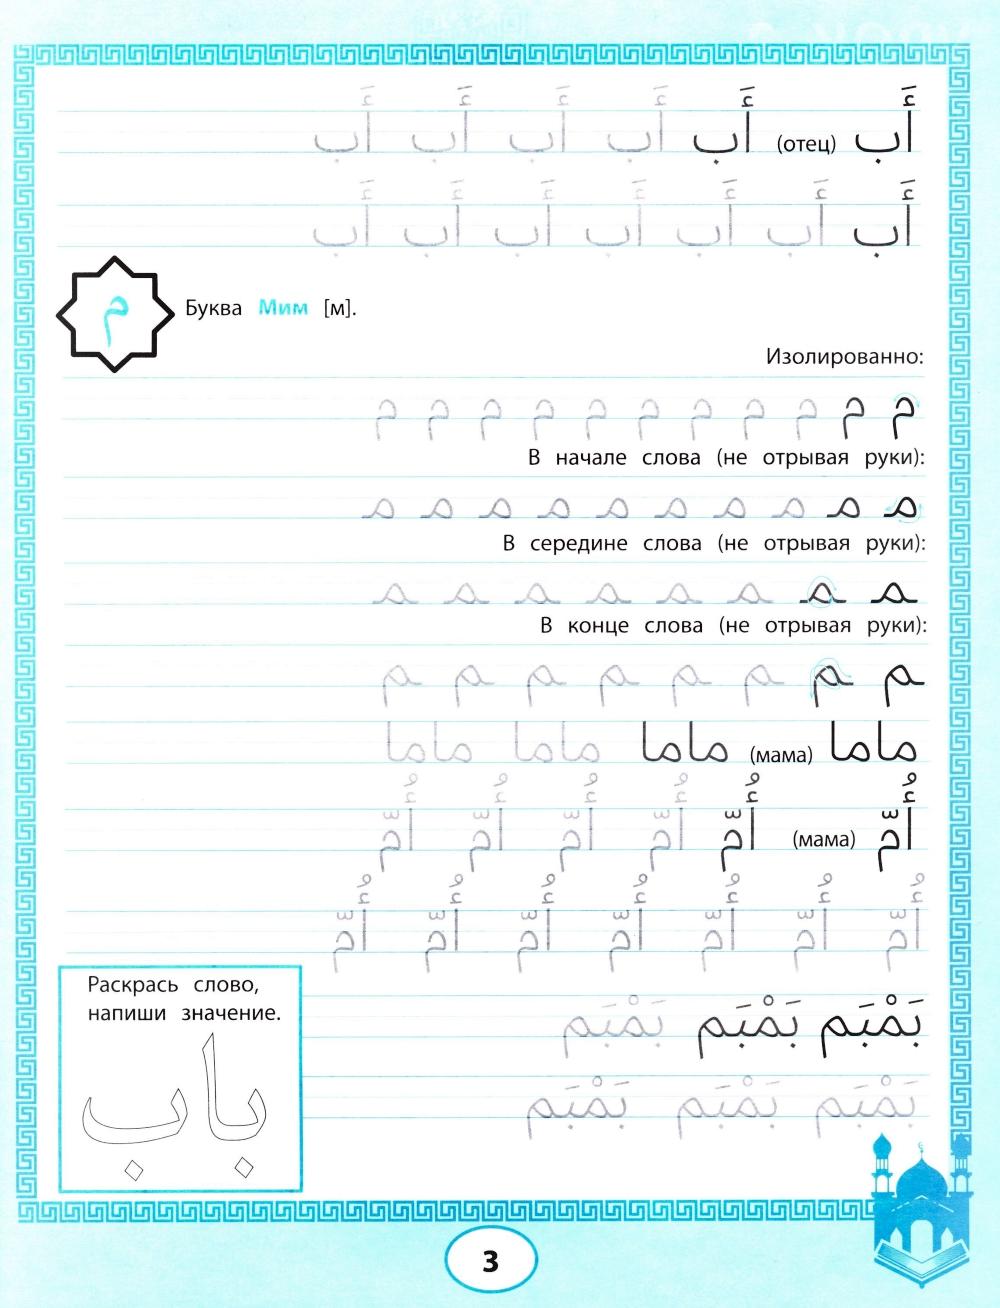 أَب (отец) أَب أَب أَب أَب أَب
أَب أَب أَب أَب أَب أَب أَب
م
Буква Мим [м].
Изолированно:
م م م م م م م م م م م
В начале слова (не отрывая руки):
مـ مـ مـ مـ مـ مـ مـ مـ مـ مـ
В середине слова (не отрывая руки):
ـمـ ـمـ ـمـ ـمـ ـمـ ـمـ ـمـ ـمـ
В конце слова (не отрывая руки):
ـم ـم ـم ـم ـم ـم ـم ـم
ماما (мама) ماما ماما ماما
أُمّ (мама) أُمّ أُمّ أُمّ أُمّ أُمّ
أُمّ أُمّ أُمّ أُمّ أُمّ أُمّ أُمّ
بَمْبَم بَمْبَم بَمْبَم
بَمْبَم بَمْبَم بَمْبَم
Раскрась слово,
напиши значение.
باب
3